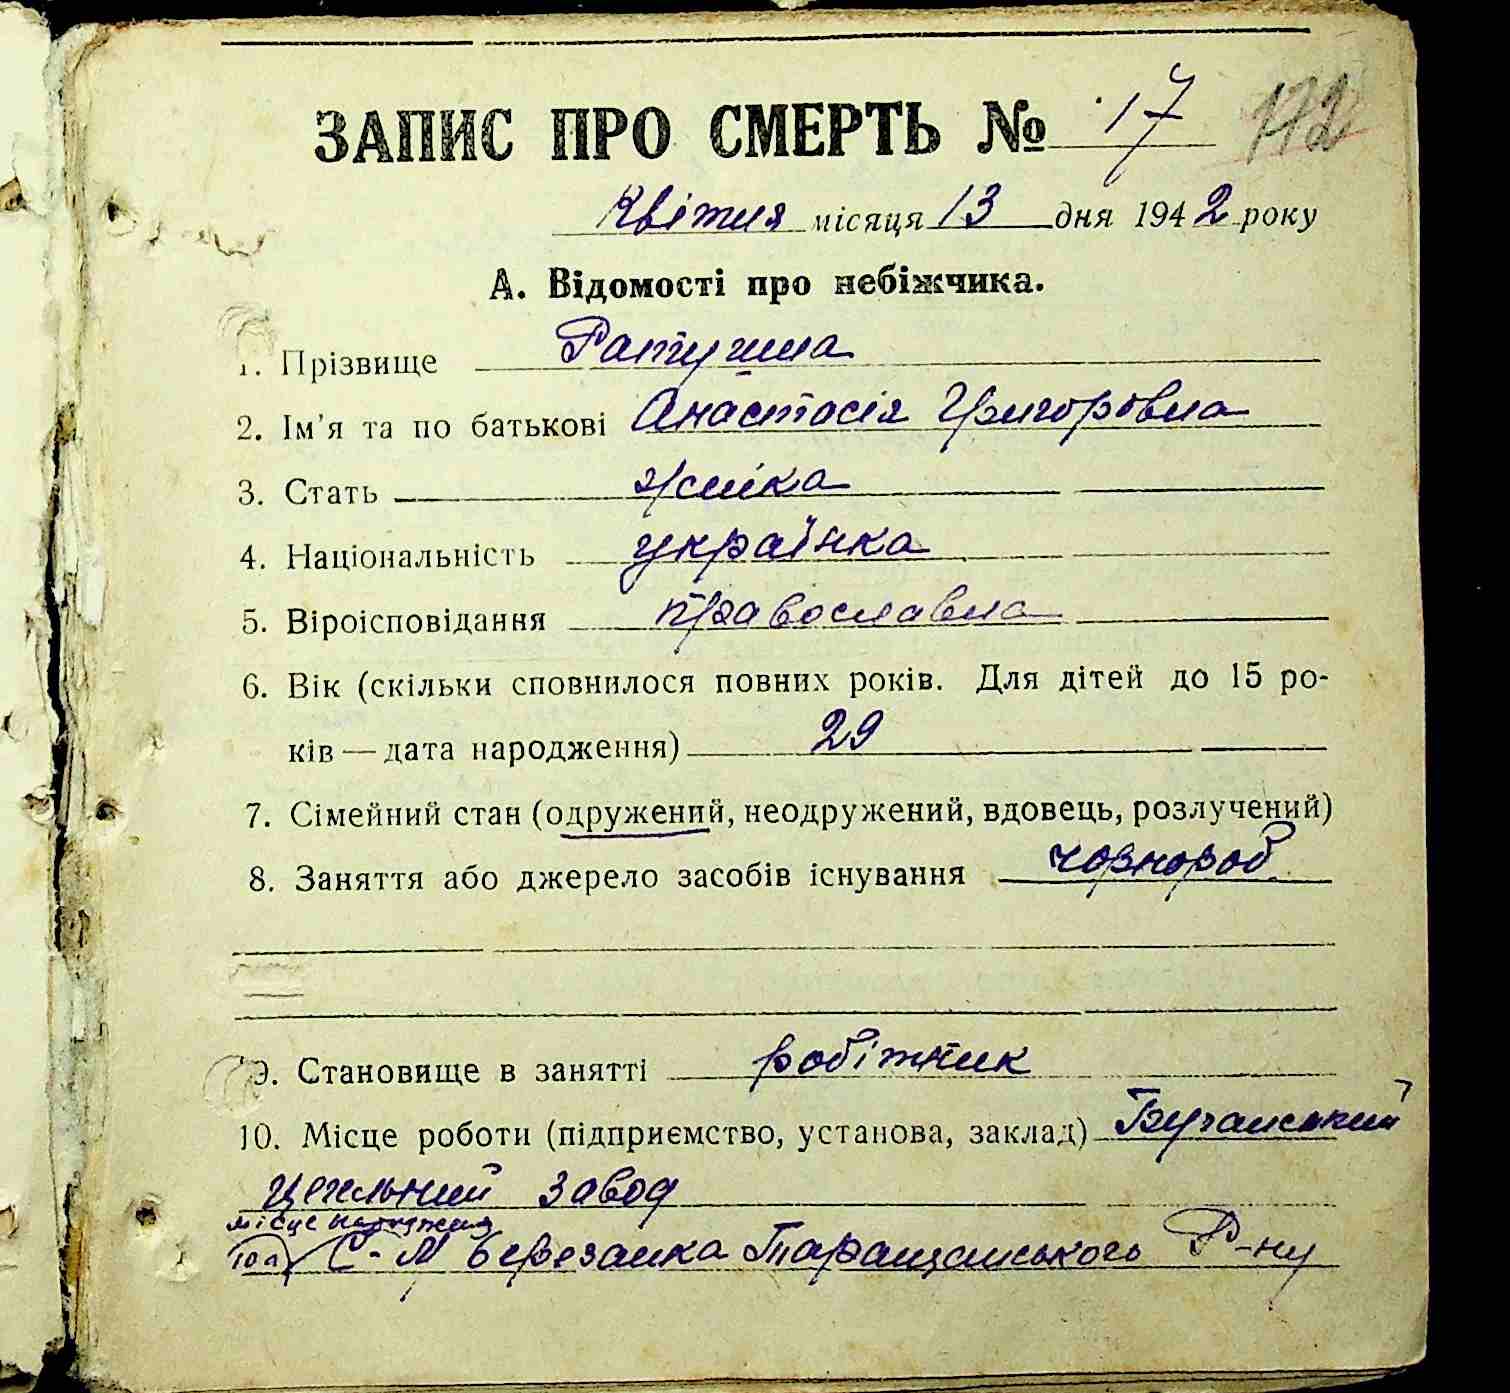 ЗАПИС ПРО СМЕРТЬ № 17 172
Квітня місяця 13 дня 1942 року
А. Відомості про небіжчика.
1. Прізвище Ратушна
2. Ім'я та по батькові Анастасія Григоровна
3. Стать жінка
4. Національність українка
5. Віроісповідання православна
6. Вік (скільки сповнилося повних років. Для дітей до 15 ро-
ків — дата народження) 29
7. Сімейний стан (одружений, неодружений, вдовець, розлучений)
8. Заняття або джерело засобів існування чорнороб
9. Становище в занятті робітник
10. Місце роботи (підприємство, установа, заклад)
цегельний завод
місце
10а С. М Березанка Таращанського Р-ну